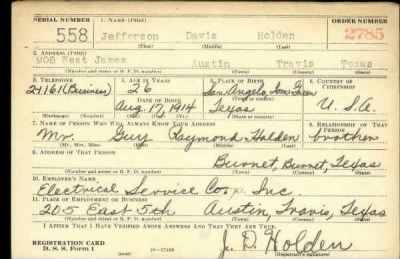 SERIAL NUMBER 1. NAME (Print) ORDER NUMBER
558 Jefferson Davis Holden 2785
(First) (Middle) (Last)
2. ADDRESS (Print)
908 West James Austin Travis Texas
(Number and street or R. F. D. number) (Town) (County) (State)
3. TELEPHONE 4. AGE IN YEARS 5. PLACE OF BIRTH 6. COUNTRY OF CITIZENSHIP
2-1161 (Business) 26 San Angelo, Tom Green
(Town or county)
DATE OF BIRTH
Aug. 17, 1914 Texas U. S. A.
(Exchange) (Number) (Mo.) (Day) (Yr.) (State or country)
7. NAME OF PERSON WHO WILL ALWAYS KNOW YOUR ADDRESS 8. RELATIONSHIP OF THAT PERSON
Mr. Guy Raymond Holden brother
(Mr., Mrs., Miss) (First) (Middle) (Last)
9. ADDRESS OF THAT PERSON
Burnet, Burnet, Texas
(Number and street or R. F. D. number) (Town) (County) (State)
10. EMPLOYER'S NAME
Electrical Service Corp. Inc.
11. PLACE OF EMPLOYMENT OR BUSINESS
205 East 5th Austin, Travis, Texas
(Number and street or R. F. D. number) (Town) (County) (State)
I AFFIRM THAT I HAVE VERIFIED ABOVE ANSWERS AND THAT THEY ARE TRUE.
REGISTRATION CARD
D. S. S. Form 1 J. D. Holden
(Registrant's signature)